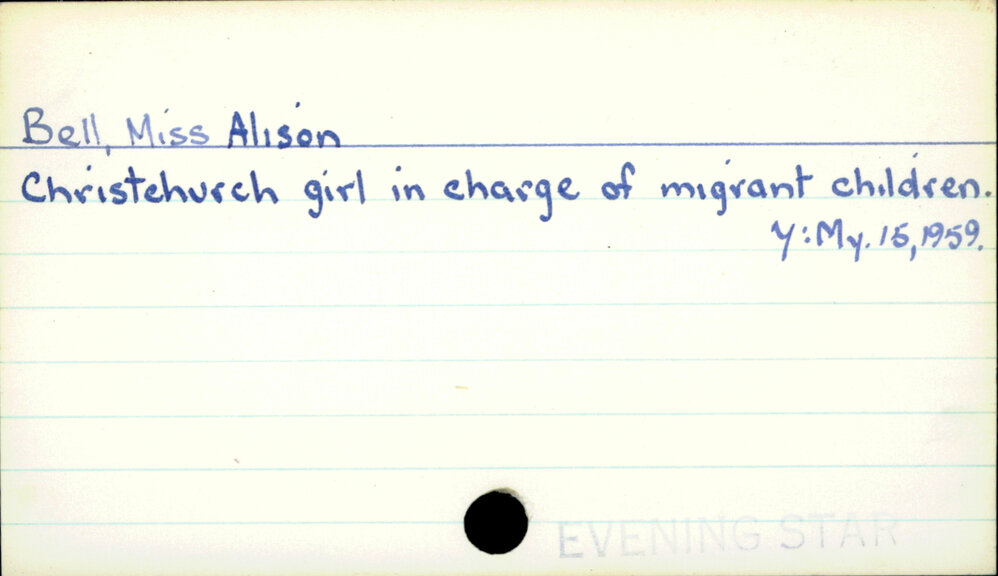 Bell, Miss Alison
Christchurch girl in charge of migrant children.
Y: My. 15, 1959.
EVENING STAR